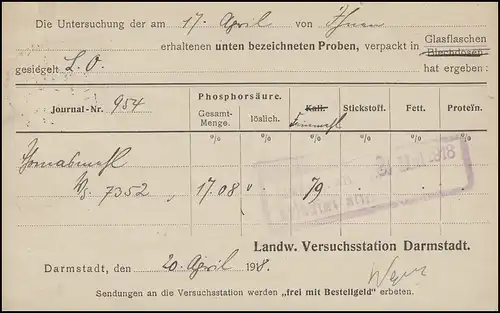 Die Untersuchung der am 17. April von Ihnen
erhaltenen unten bezeichneten Proben, verpackt in Glasflaschen
Blechdosen
gesiegelt L. O. hat ergeben:
Journal-Nr. 954
Phosphorsäure.
Gesamt-Menge.
löslich.
Kali.
Feinmehl
Stickstoff.
Fett.
Proteïn.
% % % % % %
Thomasmehl
Wg. 7352 17.08 " 79
Landw. Versuchsstation Darmstadt.
Darmstadt, den 20. April 1918.
Sendungen an die Versuchsstation werden „frei mit Bestellgeld" erbeten.